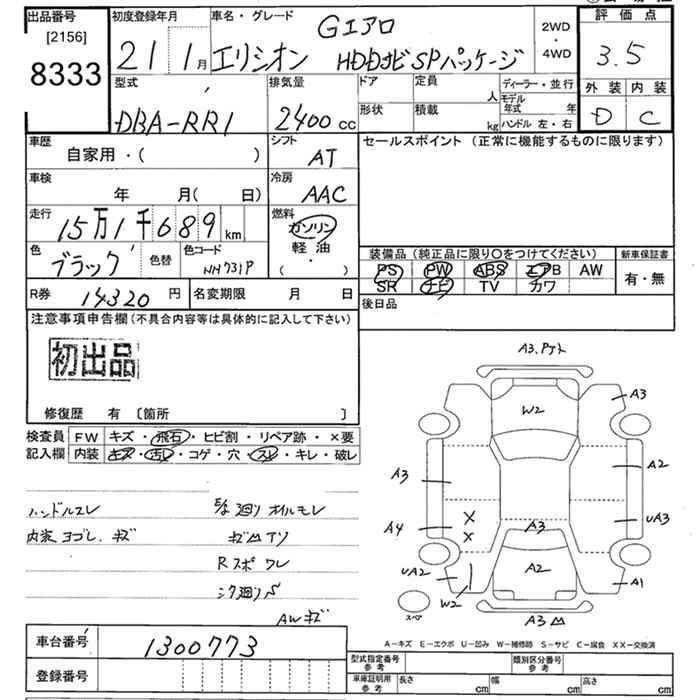 出品番号
[2156]
8333
初度登録年月
21 1月
車名・グレード
Gエアロ
エリシオン HDDナビSPパッケージ
2WD
・
4WD
評価点
3.5
外装 内装
D C
型式
DBA-RR1
排気量
2400cc
ドア
定員
人
形状
積載
kg
ディーラー・並行
モデル年式 年
ハンドル 左・右
車歴
自家用・( )
シフト
AT
セールスポイント (正常に機能するものに限ります)
車検
年 月( 日)
冷房
AAC
走行
15万1千689km
燃料
ガソリン
軽油
( ・ )
色
ブラック
色替
色コード
NH731P
装備品 (純正品に限り○をつけてください)
新車保証書
PS PW ABS エアB AW
SR ナビ TV カワ
有・無
R券
14320円
名変期限 月 日
後日品
注意事項申告欄(不具合内容等は具体的に記入して下さい)
初出品
修復歴 有 [箇所 ]
検査員記入欄
FW キズ・飛石・ヒビ割・リペア跡・×要
内装 キズ・汚レ・コゲ・穴・スレ・キレ・破レ
ハンドルスレ
内装ヨゴレ、キズ
廻りオイルモレ
Rスポ ワレ
シタ廻りS
AWキズ
A3
W2
A3
A2
A3
UA3
A4
×
×
A3
UA2
A2
A1
W2
スペア
A3
A-キズ E-エクボ U-凹み W-補修跡 S-サビ C-腐食 XX-交換済
車台番号
1300773
登録番号
型式指定番号
参考
類別区分番号
参考
車庫証明用
参考
長さ cm
幅 cm
高さ cm